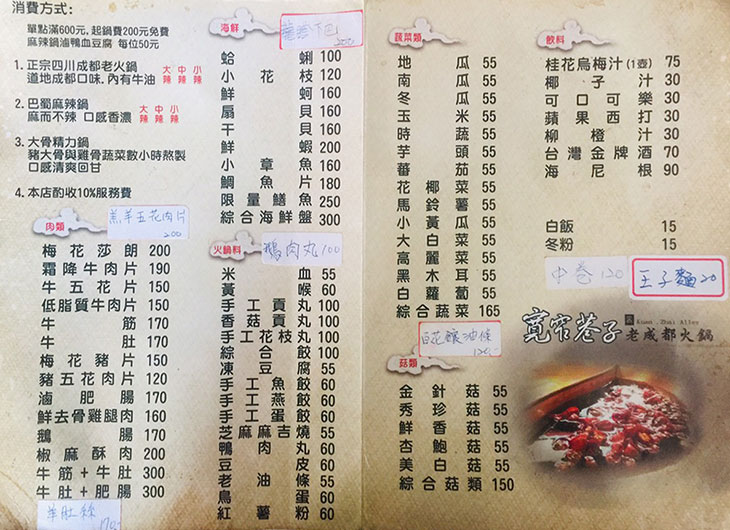 消費方式:
單點滿600元, 起鍋費200元免費
麻辣鍋滷鴨血豆腐 每位50元
1. 正宗四川成都老火鍋 大 中 小
道地成都口味, 內有牛油 辣 辣 辣
2. 巴蜀麻辣鍋 大 中 小
麻而不辣 口感香濃 辣 辣 辣
3. 大骨精力鍋
豬大骨與雞骨蔬菜數小時熬製
口感清爽回甘
4. 本店酌收10%服務費
肉類
羔羊五花肉片
200
梅花莎朗 200
霜降牛肉片 190
牛五花片 150
低脂質牛肉片 150
牛筋 170
牛肚 170
梅花豬片 150
豬五花肉片 120
滷肥腸 170
鮮去骨雞腿肉 160
鵝腸 170
椒麻酥肉 200
牛筋+牛肚 300
牛肚+肥腸 300
羊肚絲
170
海鮮
下巴
200
蛤蜊 100
小花枝 120
鮮蚵 160
扇貝 160
干貝 160
鮮蝦 200
小章魚 160
鯛魚片 180
限量鱔魚 250
綜合海鮮盤 300
火鍋料
鵝肉丸 100
米血 55
黃喉 60
手工貢丸 100
香菇貢丸 100
手工花枝丸 100
綜合餃 100
凍豆腐 55
手工魚餃 60
手工燕餃 60
手工蛋餃 60
芝麻麻吉燒 55
鴨肉丸 60
豆皮 60
老油條 55
鳥蛋 60
紅薯粉 60
蔬菜類
地瓜 55
南瓜 55
冬瓜 55
玉米 55
時蔬 55
芋頭 55
蕃茄 55
花椰菜 55
馬鈴薯 55
小黃瓜 55
大白菜 55
高麗菜 55
黑木耳 55
白蘿蔔 55
綜合蔬菜 165
百花釀油條
120
菇類
金針菇 55
秀珍菇 55
鮮香菇 55
杏鮑菇 55
美白菇 55
綜合菇類 150
飲料
桂花烏梅汁(1壺) 75
椰子汁 30
可口可樂 30
蘋果西打 30
柳橙汁 30
台灣金牌酒 70
海尼根 90
白飯 15
冬粉 15
中卷 120
王子麵 20
寬窄巷子
Kuan Zhai Alley
老成都火鍋